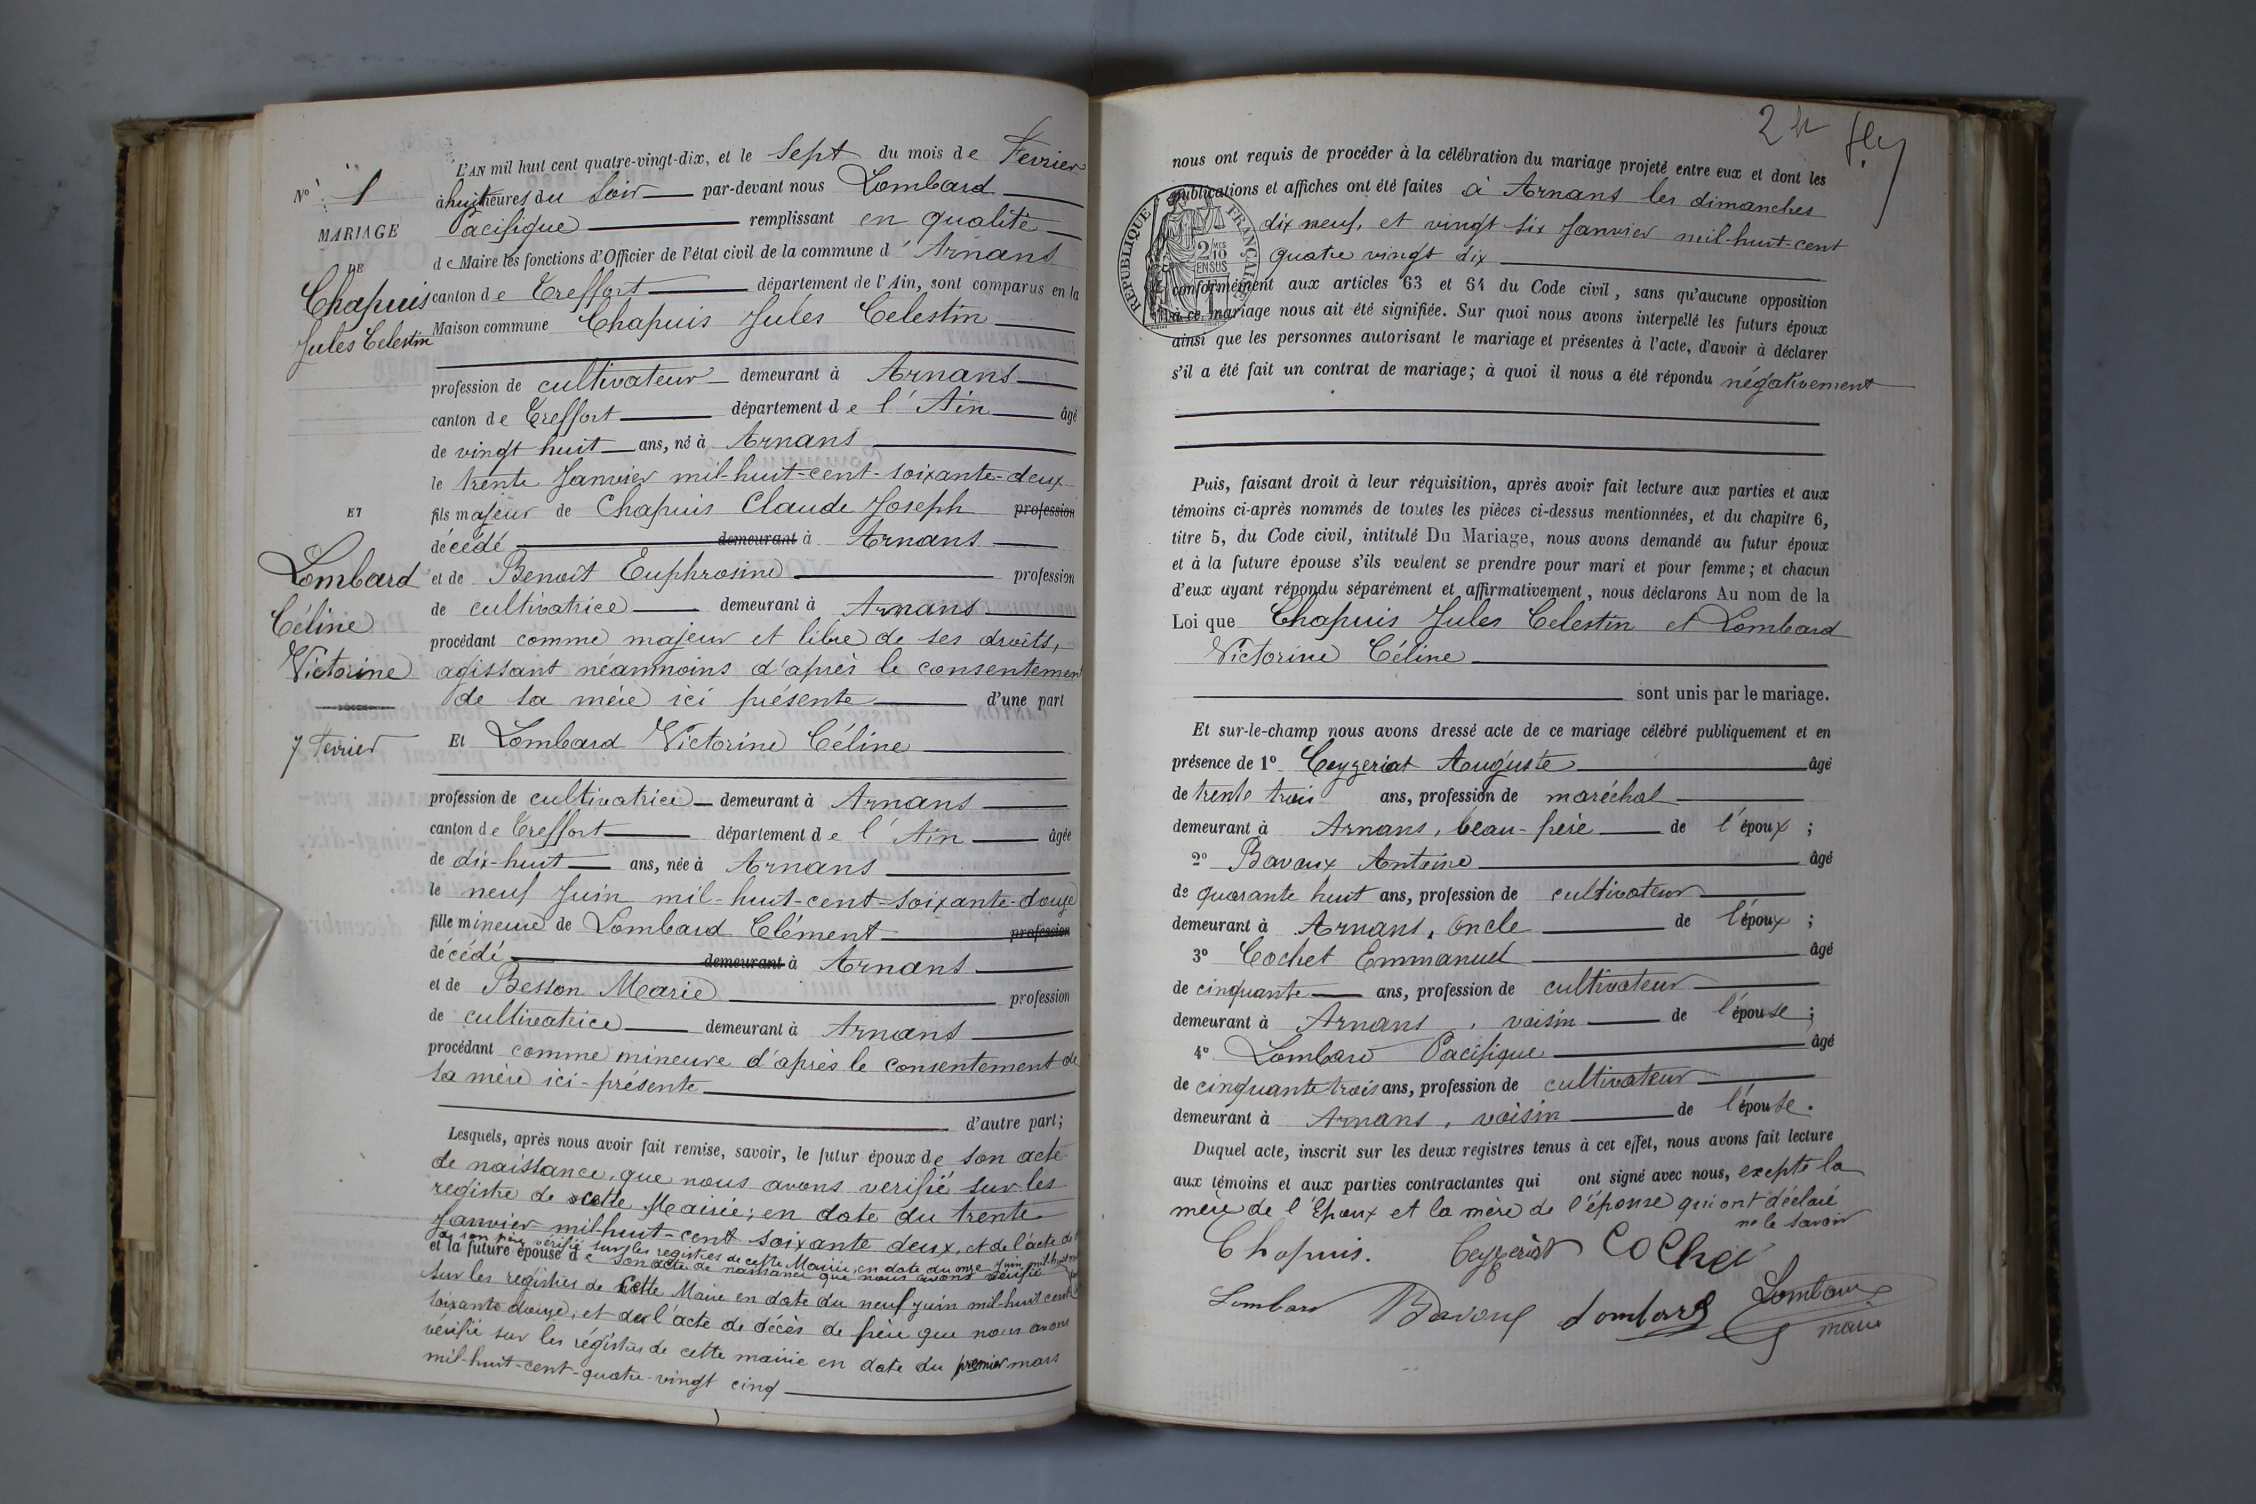 L'AN mil huit cent quatre-vingt-dix, et le Sept du mois de Fevrier
N° 1
à huit heures du Soir par-devant nous Lombard
MARIAGE
Pacifique remplissant en qualité
de Maire les fonctions d'Officier de l'état civil de la commune d'Arnans
DE
Chapuis
canton de Treffort département de l'Ain, sont comparus en la
Jules Celestin
Maison commune Chapuis Jules Celestin
profession de cultivateur demeurant à Arnans
canton de Treffort département de l'Ain âgé
de vingt huit ans, né à Arnans
le trente Janvier mil-huit-cent-soixante-deux
ET
fils majeur de Chapuis Claude Joseph profession
décédé demeurant à Arnans
Lombard
et de Benoit Euphrosine profession
Céline
de cultivatrice demeurant à Arnans
procédant comme majeur et libre de ses droits,
Victorine
agissant néanmoins d'après le consentemen
de sa mère ici présente d'une part
7 Fevrier
Et Lombard Victorine Céline
profession de cultivatrice demeurant à Arnans
canton de Treffort département de l'Ain âgée
de dix-huit ans, née à Arnans
le neuf Juin mil-huit-cent-soixante-douze
fille mineure de Lombard Clément profession
décédé demeurant à Arnans
et de Besson Marie profession
de cultivatrice demeurant à Arnans
procédant comme mineure d'après le consentement de
sa mère ici-présente
d'autre part;
Lesquels, après nous avoir fait remise, savoir, le futur époux de son acte
de naissance, que nous avons verifié sur les
registre de cette Mairie; en date du trente
Janvier mil-huit-cent soixante deux, et de l'acte de
de son père vérifié sur les registres de cette Mairie, en date du onze Juin mil-huit
et la future épouse de son acte de naissance que nous avons vérifié
sur les registres de Cette Mairie en date du neuf juin mil-huit cent
soixante douze, et de l'acte de décès de père que nous avons
vérifié sur les régistres de cette mairie en date du premier mars
mil-huit-cent-quatre-vingt cinq
nous ont requis de procéder à la célébration du mariage projeté entre eux et dont les
publications et affiches ont été faites à Arnans les dimanches
dix neuf, et vingt six Janvier mil-huit-cent
quatre vingt dix
RÉPUBLIQUE FRANÇAISE
2/10
EN SUS
conformément aux articles 63 et 64 du Code civil, sans qu'aucune opposition
à ce mariage nous ait été signifiée. Sur quoi nous avons interpellé les futurs époux
ainsi que les personnes autorisant le mariage et présentes à l'acte, d'avoir à déclarer
s'il a été fait un contrat de mariage; à quoi il nous a été répondu négativement
Puis, faisant droit à leur réquisition, après avoir fait lecture aux parties et aux
témoins ci-après nommés de toutes les pièces ci-dessus mentionnées, et du chapitre 6,
titre 5, du Code civil, intitulé Du Mariage, nous avons demandé au futur époux
et à la future épouse s'ils veulent se prendre pour mari et pour femme; et chacun
d'eux ayant répondu séparément et affirmativement, nous déclarons Au nom de la
Loi que Chapuis Jules Celestin et Lombard
Victorine Céline
sont unis par le mariage.
Et sur-le-champ nous avons dressé acte de ce mariage célébré publiquement et en
présence de 1° Ceyzeriat Auguste âgé
de trente trois ans, profession de maréchal
demeurant à Arnans, beau-frère de l'époux;
2° Bavoux Antoine âgé
de quarante huit ans, profession de cultivateur
demeurant à Arnans, oncle de l'époux;
3° Cochet Emmanuel âgé
de cinquante ans, profession de cultivateur
demeurant à Arnans, voisin de l'épouse;
4° Lombard Pacifique âgé
de cinquante trois ans, profession de cultivateur
demeurant à Arnans, voisin de l'épouse.
Duquel acte, inscrit sur les deux registres tenus à cet effet, nous avons fait lecture
aux témoins et aux parties contractantes qui ont signé avec nous, excepté la
mère de l'Epoux et la mère de l'épouse qui ont déclaré
ne le savoir
Chapuis. Ceyzeriat Cochet
Lombard Bavoux Lombard Lombard
maire